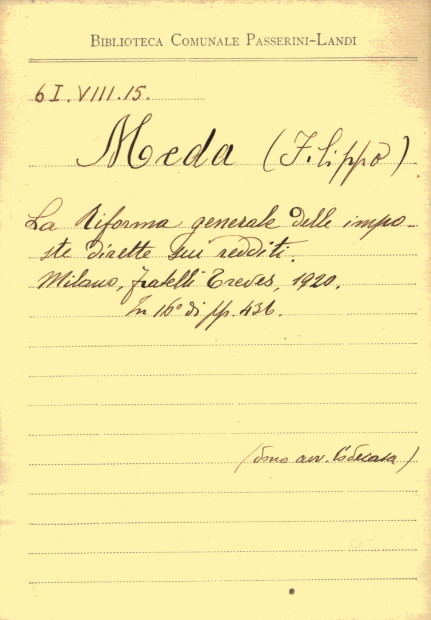 BIBLIOTECA COMUNALE PASSERINI-LANDI
6I.VIII.15.
Meda (Filippo)
La Riforma generale delle impo-
ste dirette sui redditi.
Milano, fratelli Treves, 1920.
In 16° di pp. 436.
(dono avv.